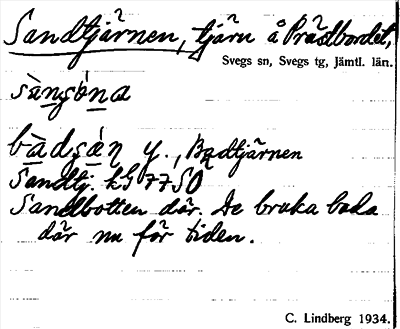 Sandtjärnen, tjärn å Prästbordet,
Svegs sn, Svegs tg, Jämtl. län.
sàṇṣǻna
bàdṣạ̀ṇ y., Badtjärnen
Sandtj. kG 77 SO
Sandbotten där. De bruka bada
där nu för tiden.
C. Lindberg 1934.